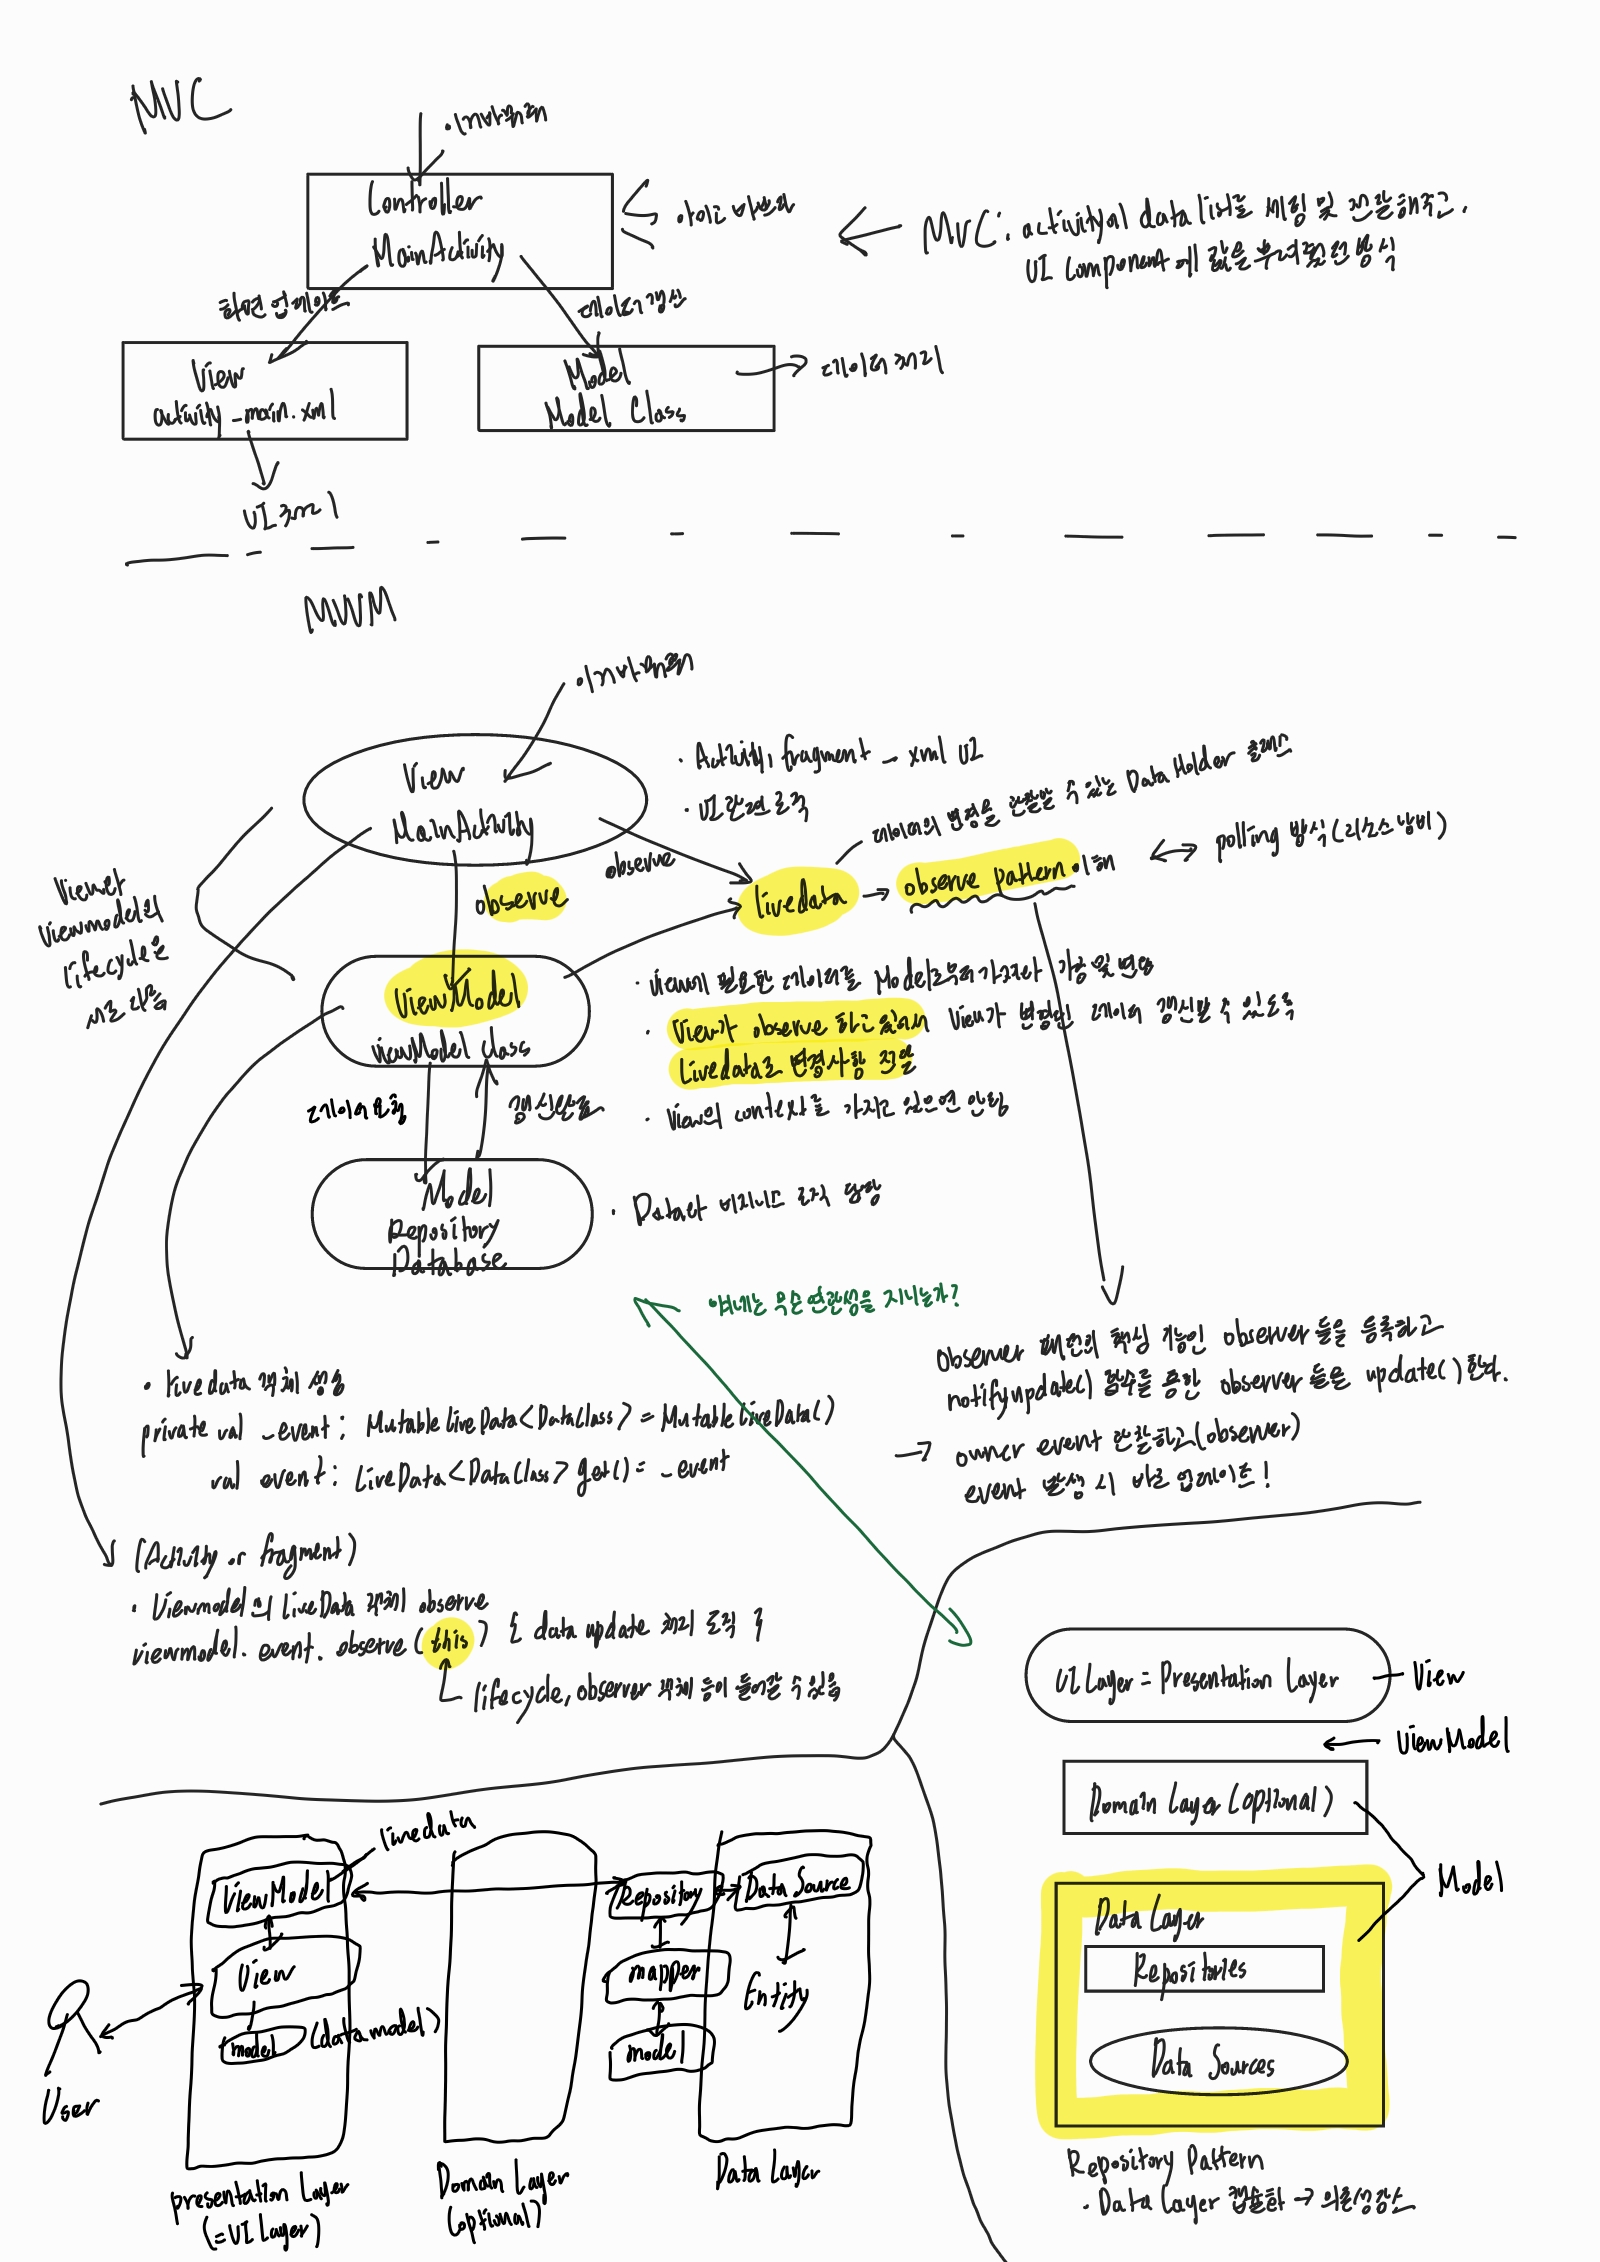 MVC
Controller
MainActivity
MVC: activity에 data list를 세팅 및 전달해주고.
UI component에 값을 부여했던 방식
화면 업데이트
데이터 갱신
View
activity_main.xml
Model
Model Class
데이터 처리
UI 처리
MVVM
View
MainActivity
· Activity, fragment - xml UI
· UI 관련 로직
데이터의 변경을 관찰할 수 있는 Data Holder 클래스
observe
observe
livedata
observe pattern 이해
polling 방식 (리소스 낭비)
View와
Viewmodel의
lifecycle은
서로 다름
ViewModel
ViewModel class
· View에 필요한 데이터를 Model로부터 가져와 가공 및 변환
· View가 observe 하고 있어서 View가 변경된 데이터 갱신할 수 있도록
Livedata로 변경사항 전달
· View의 context를 가지고 있으면 안됨
데이터 요청
갱신완료
Model
Repository
Database
· Data와 비지니스 로직 담당
얘네는 무슨 연관성을 지니는가?
observer 패턴의 핵심 기능인 observer 들을 등록하고
notifyupdate() 함수를 통한 observer 들을 update() 한다.
→ owner event 관찰하고(observer)
event 발생 시 바로 업데이트!
· livedata 객체 생성
private val _event: MutableLiveData<DataClass> = MutableLiveData()
val event: LiveData<DataClass> get() = _event
(Activity or fragment)
· Viewmodel의 LiveData 객체 observe
viewmodel.event.observe(this) { data update 처리 로직 }
lifecycle, observer 객체 등이 들어갈 수 있음
UI Layer = Presentation Layer
View
ViewModel
Domain Layer (optional)
Model
Data Layer
Repositories
Data Sources
Repository Pattern
· Data Layer 캡슐화 → 의존성감소
livedata
ViewModel
View
model
(datamodel)
User
presentation Layer
(=UI Layer)
Domain Layer
(optional)
Repository
mapper
model
Data Source
Entity
Data Layer